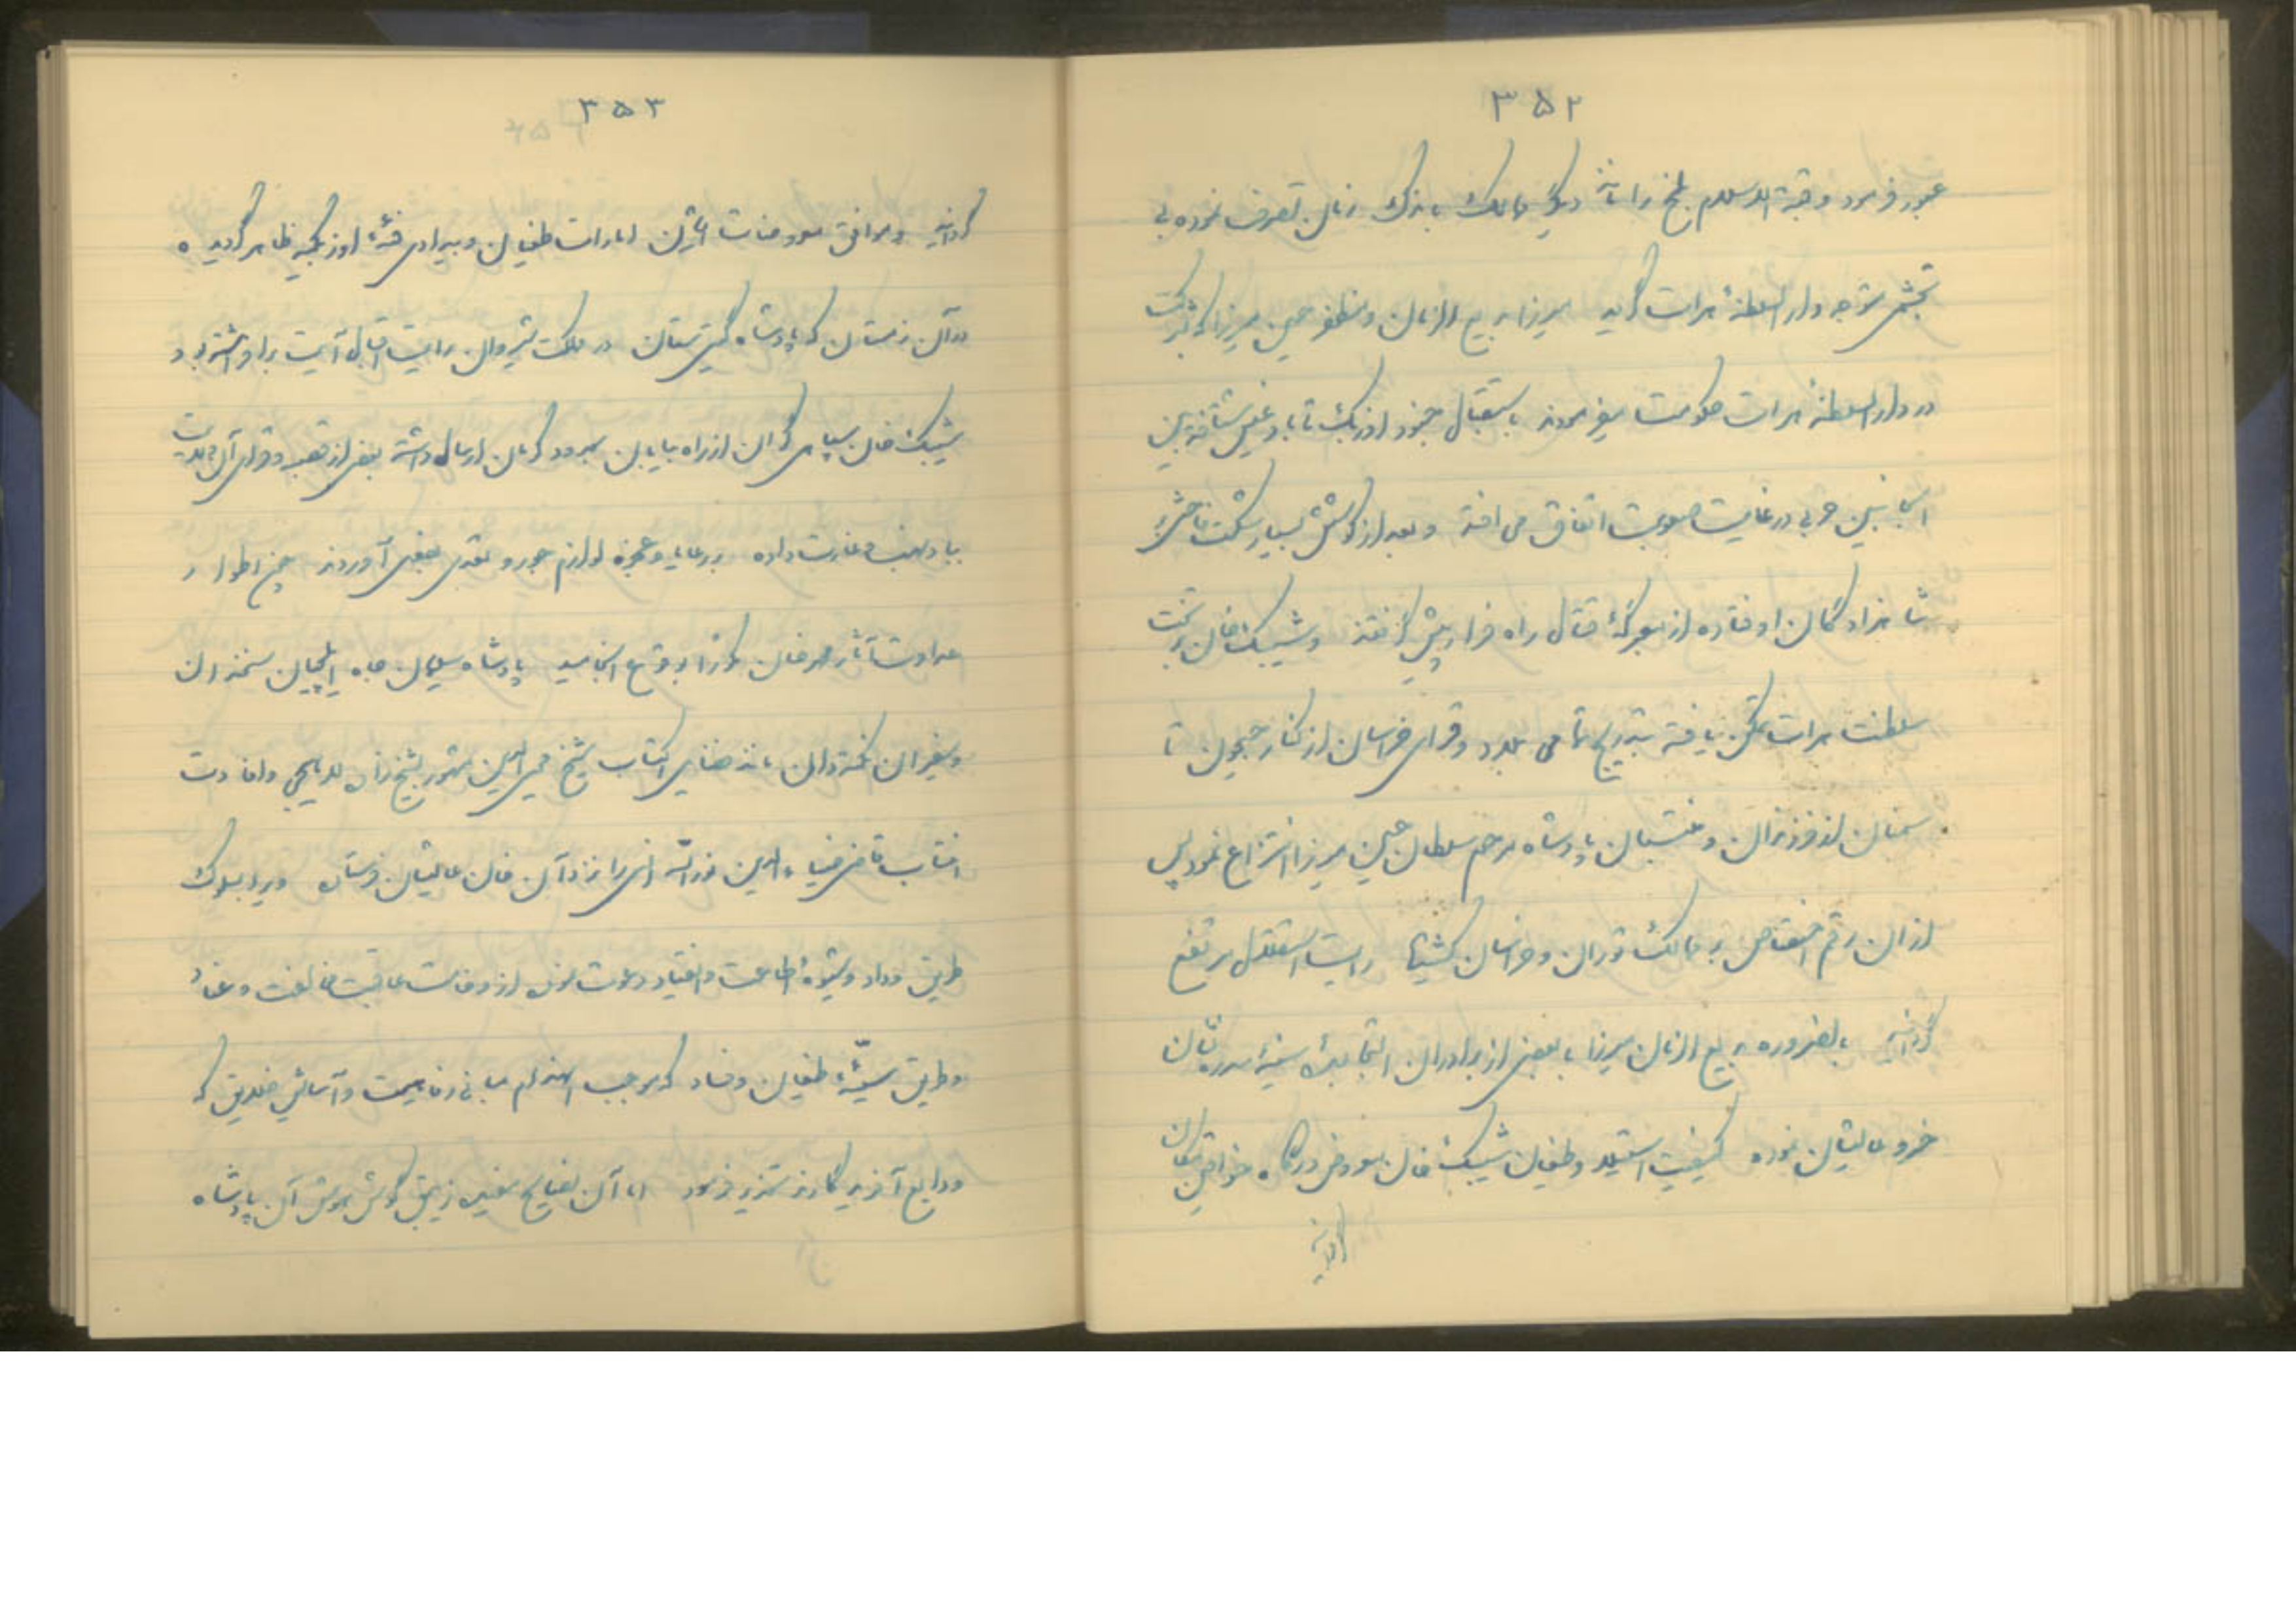 ۳۵۲
عبور فرمود و قبة الاسلام بلخ را با دیگر ممالک باندک زمان تصرف نموده بی
تحشی متوجه دار السلطنهٔ هرات گردید میرزا بدیع الزمان و مظفر حسین میرزا که بشرکت
در دار السلطنه هرات حکومت میفرمودند باستقبال جنود اوزبک تا بادغیس شتافته بین
الجانبین حربی در غایت صعوبت اتفاق می افتد و بعد از کوشش بسیار شکست فاحش بر
شاهزادگان اوفتاده از معرکهٔ قتال راه فرار پیش گرفتند و شیبک خان بر تخت
سلطنت هرات تمکن یافته بتدریج تمامی بلاد و قرای خراسان از کنار جیحون تا
سمنان از فرزندان و منتسبان پادشاه مرحوم سلطان حسین میرزا انتزاع نمود پس
از آن رقم اختصاص بر ممالک توران و خراسان کشیده رایت استقلال مرتفع
گردانید بالضروره بدیع الزمان میرزا با بعضی از برادران التجا بسدهٔ سنیهٔ سدره نشان
خسرو عالیشان نموده کیفیت استیلا و طغیان شیبک خان معروض درگاه خواقین مکان
گردانید
۳۵۳
گردانید و موافق معروضات ایشان امارات طغیان و بیدادی فئهٔ اوزبکیه ظاهر گردیده
در آن زمستان که پادشاه گیتی ستان در ملک شیروان رایت اقبال آیت برافراشته بود
شیبک خان سپاهی گران از راه بیابان بحدود کرمان ارسال داشته بعضی از قصبه و قرای آن ولایت
بباد نهب و غارت داده بر رعایا و عجزه لوازم جور و تعدی بفعل آوردند چون اطوار
عداوت آثار محمد خان مکررا بوقوع انجامید پادشاه سلیمان جاه ایلچیان سخندان
و سفیران نکته دان مانند فضایل اکتساب شیخ محیی الدین مشهور بشیخ زاده لاهیجی و افادت
انتساب قاضی ضیاء الدین نورالله انی را نزد آن خان عالیشان فرستاده ویرا بسلوک
طریق وداد و شیوهٔ اطاعت و انقیاد دعوت نموده از وخامت عاقبت مخالفت و عناد
و طریق سیئهٔ طغیان و فساد که موجب انهدام مبانی رفاهیت و آسایش خلایق که
ودایع آفریدگارند تحذیر فرمود اما آن نصایح سفید زیبق گوش هوش آن پادشاه